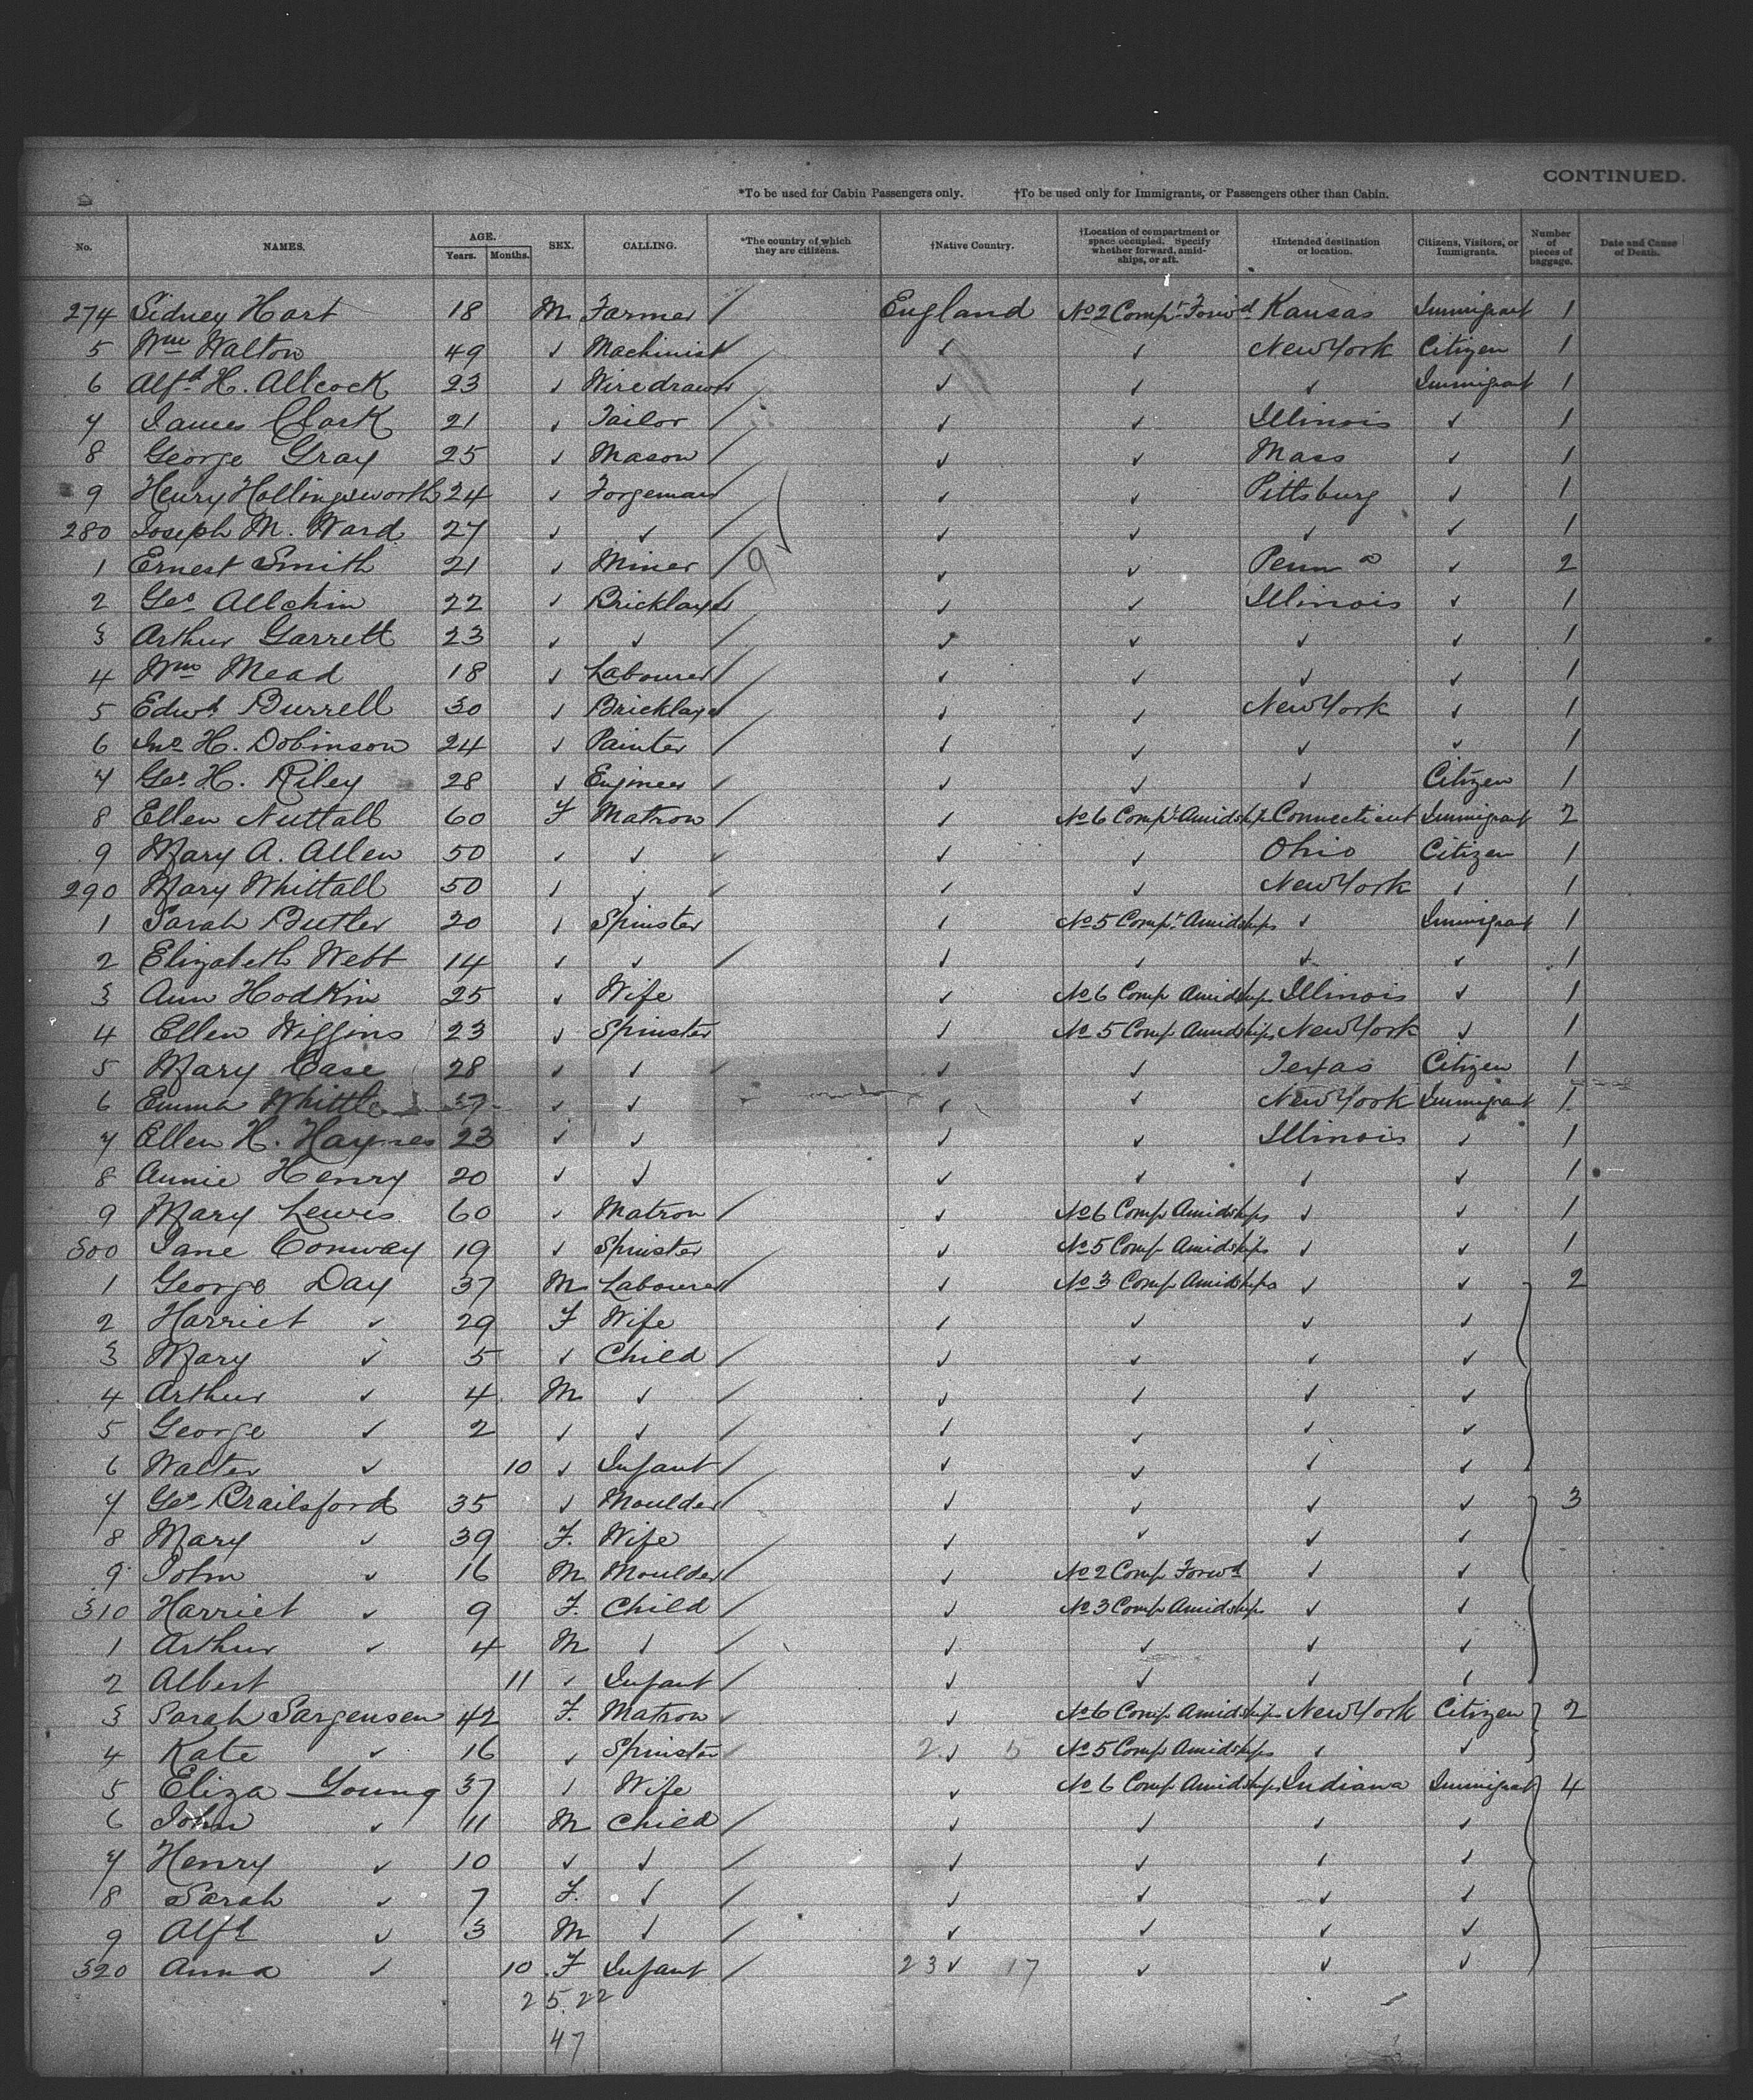 CONTINUED.
*To be used for Cabin Passengers only. †To be used only for Immigrants, or Passengers other than Cabin.
No. NAMES. AGE. Years. Months. SEX. CALLING. *The country of which they are citizens. †Native Country. †Location of compartment or space occupied. Specify whether forward, amidships, or aft. †Intended destination or location. Citizens, Visitors, or Immigrants. Number of pieces of baggage. Date and Cause of Death.
274 Sidney Hart 18 M Farmer / England No 2 Compt Forwd Kansas Immigrant 1
5 Wm Walton 49 ✓ Machinist / ✓ ✓ New York Citizen 1
6 Alfd H. Allcock 23 ✓ Wiredrawer / ✓ ✓ ✓ Immigrant 1
7 James Clark 21 ✓ Tailor / ✓ ✓ Illinois ✓ 1
8 George Gray 25 ✓ Mason / ✓ ✓ Mass ✓ 1
9 Henry Hollingsworth 24 ✓ Forgeman / ✓ ✓ Pittsburg ✓ 1
280 Joseph M. Ward 27 ✓ ✓ / ✓ ✓ ✓ ✓ 1
1 Ernest Smith 21 ✓ Miner / 9 ✓ ✓ Penna ✓ 2
2 Geo Allchin 22 ✓ Bricklayer / ✓ ✓ Illinois ✓ 1
3 Arthur Garrett 23 ✓ ✓ / ✓ ✓ ✓ ✓ 1
4 Wm Mead 18 ✓ Labourer / ✓ ✓ ✓ ✓ 1
5 Edwd Burrell 30 ✓ Bricklayer / ✓ ✓ New York ✓ 1
6 Jno H. Dobinson 24 ✓ Painter / ✓ ✓ ✓ ✓ 1
7 Geo H. Riley 28 ✓ Engineer / ✓ ✓ ✓ Citizen 1
8 Ellen Nuttall 60 F Matron / ✓ No 6 Compt Amidships Connecticut Immigrant 2
9 Mary A. Allen 50 ✓ ✓ ✓ ✓ ✓ Ohio Citizen 1
290 Mary Whittall 50 ✓ ✓ ✓ ✓ ✓ New York ✓ 1
1 Sarah Butler 20 ✓ Spinster ✓ No 5 Compt Amidships ✓ Immigrant 1
2 Elizabeth Webb 14 ✓ ✓ / ✓ ✓ ✓ ✓ 1
3 Ann Hodkin 25 ✓ Wife ✓ No 6 Comp Amidships Illinois ✓ 1
4 Ellen Wiggins 23 ✓ Spinster ✓ No 5 Comp Amidships New York ✓ 1
5 Mary Case 28 ✓ ✓ ✓ ✓ ✓ Texas Citizen 1
6 Emma Whittle ✓ ✓ ✓ ✓ New York Immigrant 1
7 Ellen H. Haynes 23 ✓ ✓ ✓ ✓ Illinois ✓ 1
8 Annie Henry 20 ✓ ✓ ✓ ✓ ✓ ✓ 1
9 Mary Lewis 60 ✓ Matron / ✓ No 6 Comp Amidships ✓ ✓ 1
300 Jane Conway 19 ✓ Spinster ✓ No 5 Comp Amidships ✓ ✓ 1
1 George Day 37 M Labourer / ✓ No 3 Comp Amidships ✓ ✓ 2
2 Harriet ✓ 29 F Wife ✓ ✓ ✓ ✓
3 Mary ✓ 5 ✓ Child / ✓ ✓ ✓ ✓
4 Arthur ✓ 4 M ✓ / ✓ ✓ ✓ ✓
5 George ✓ 2 ✓ ✓ / ✓ ✓ ✓ ✓
6 Walter ✓ 10 ✓ Infant / ✓ ✓ ✓ ✓
7 Geo Brailsford 35 ✓ Moulder / ✓ ✓ ✓ ✓ 3
8 Mary ✓ 39 F. Wife ✓ ✓ ✓ ✓
9 John ✓ 16 M Moulder / ✓ No 2 Comp Forwd ✓ ✓
310 Harriet ✓ 9 F. Child / ✓ No 3 Comp Amidships ✓ ✓
1 Arthur ✓ 4 M ✓ / ✓ ✓ ✓ ✓
2 Albert 11 ✓ Infant / ✓ ✓ ✓ ✓
3 Sarah Sargensen 42 F. Matron ✓ ✓ No 6 Comp Amidships New York Citizen 2
4 Kate ✓ 16 ✓ Spinster / 2 ✓ 5 No 5 Comp Amidships ✓ ✓
5 Eliza Young 37 ✓ Wife ✓ No 6 Comp Amidships Indiana Immigrant 4
6 John ✓ 11 M Child / ✓ ✓ ✓ ✓
7 Henry ✓ 10 ✓ ✓ / ✓ ✓ ✓ ✓
8 Sarah ✓ 7 F. ✓ / ✓ ✓ ✓ ✓
9 Alfd ✓ 3 M ✓ / ✓ ✓ ✓ ✓
320 Anna ✓ 10 F Infant / 23 ✓ 17 ✓ ✓ ✓
25.22
47